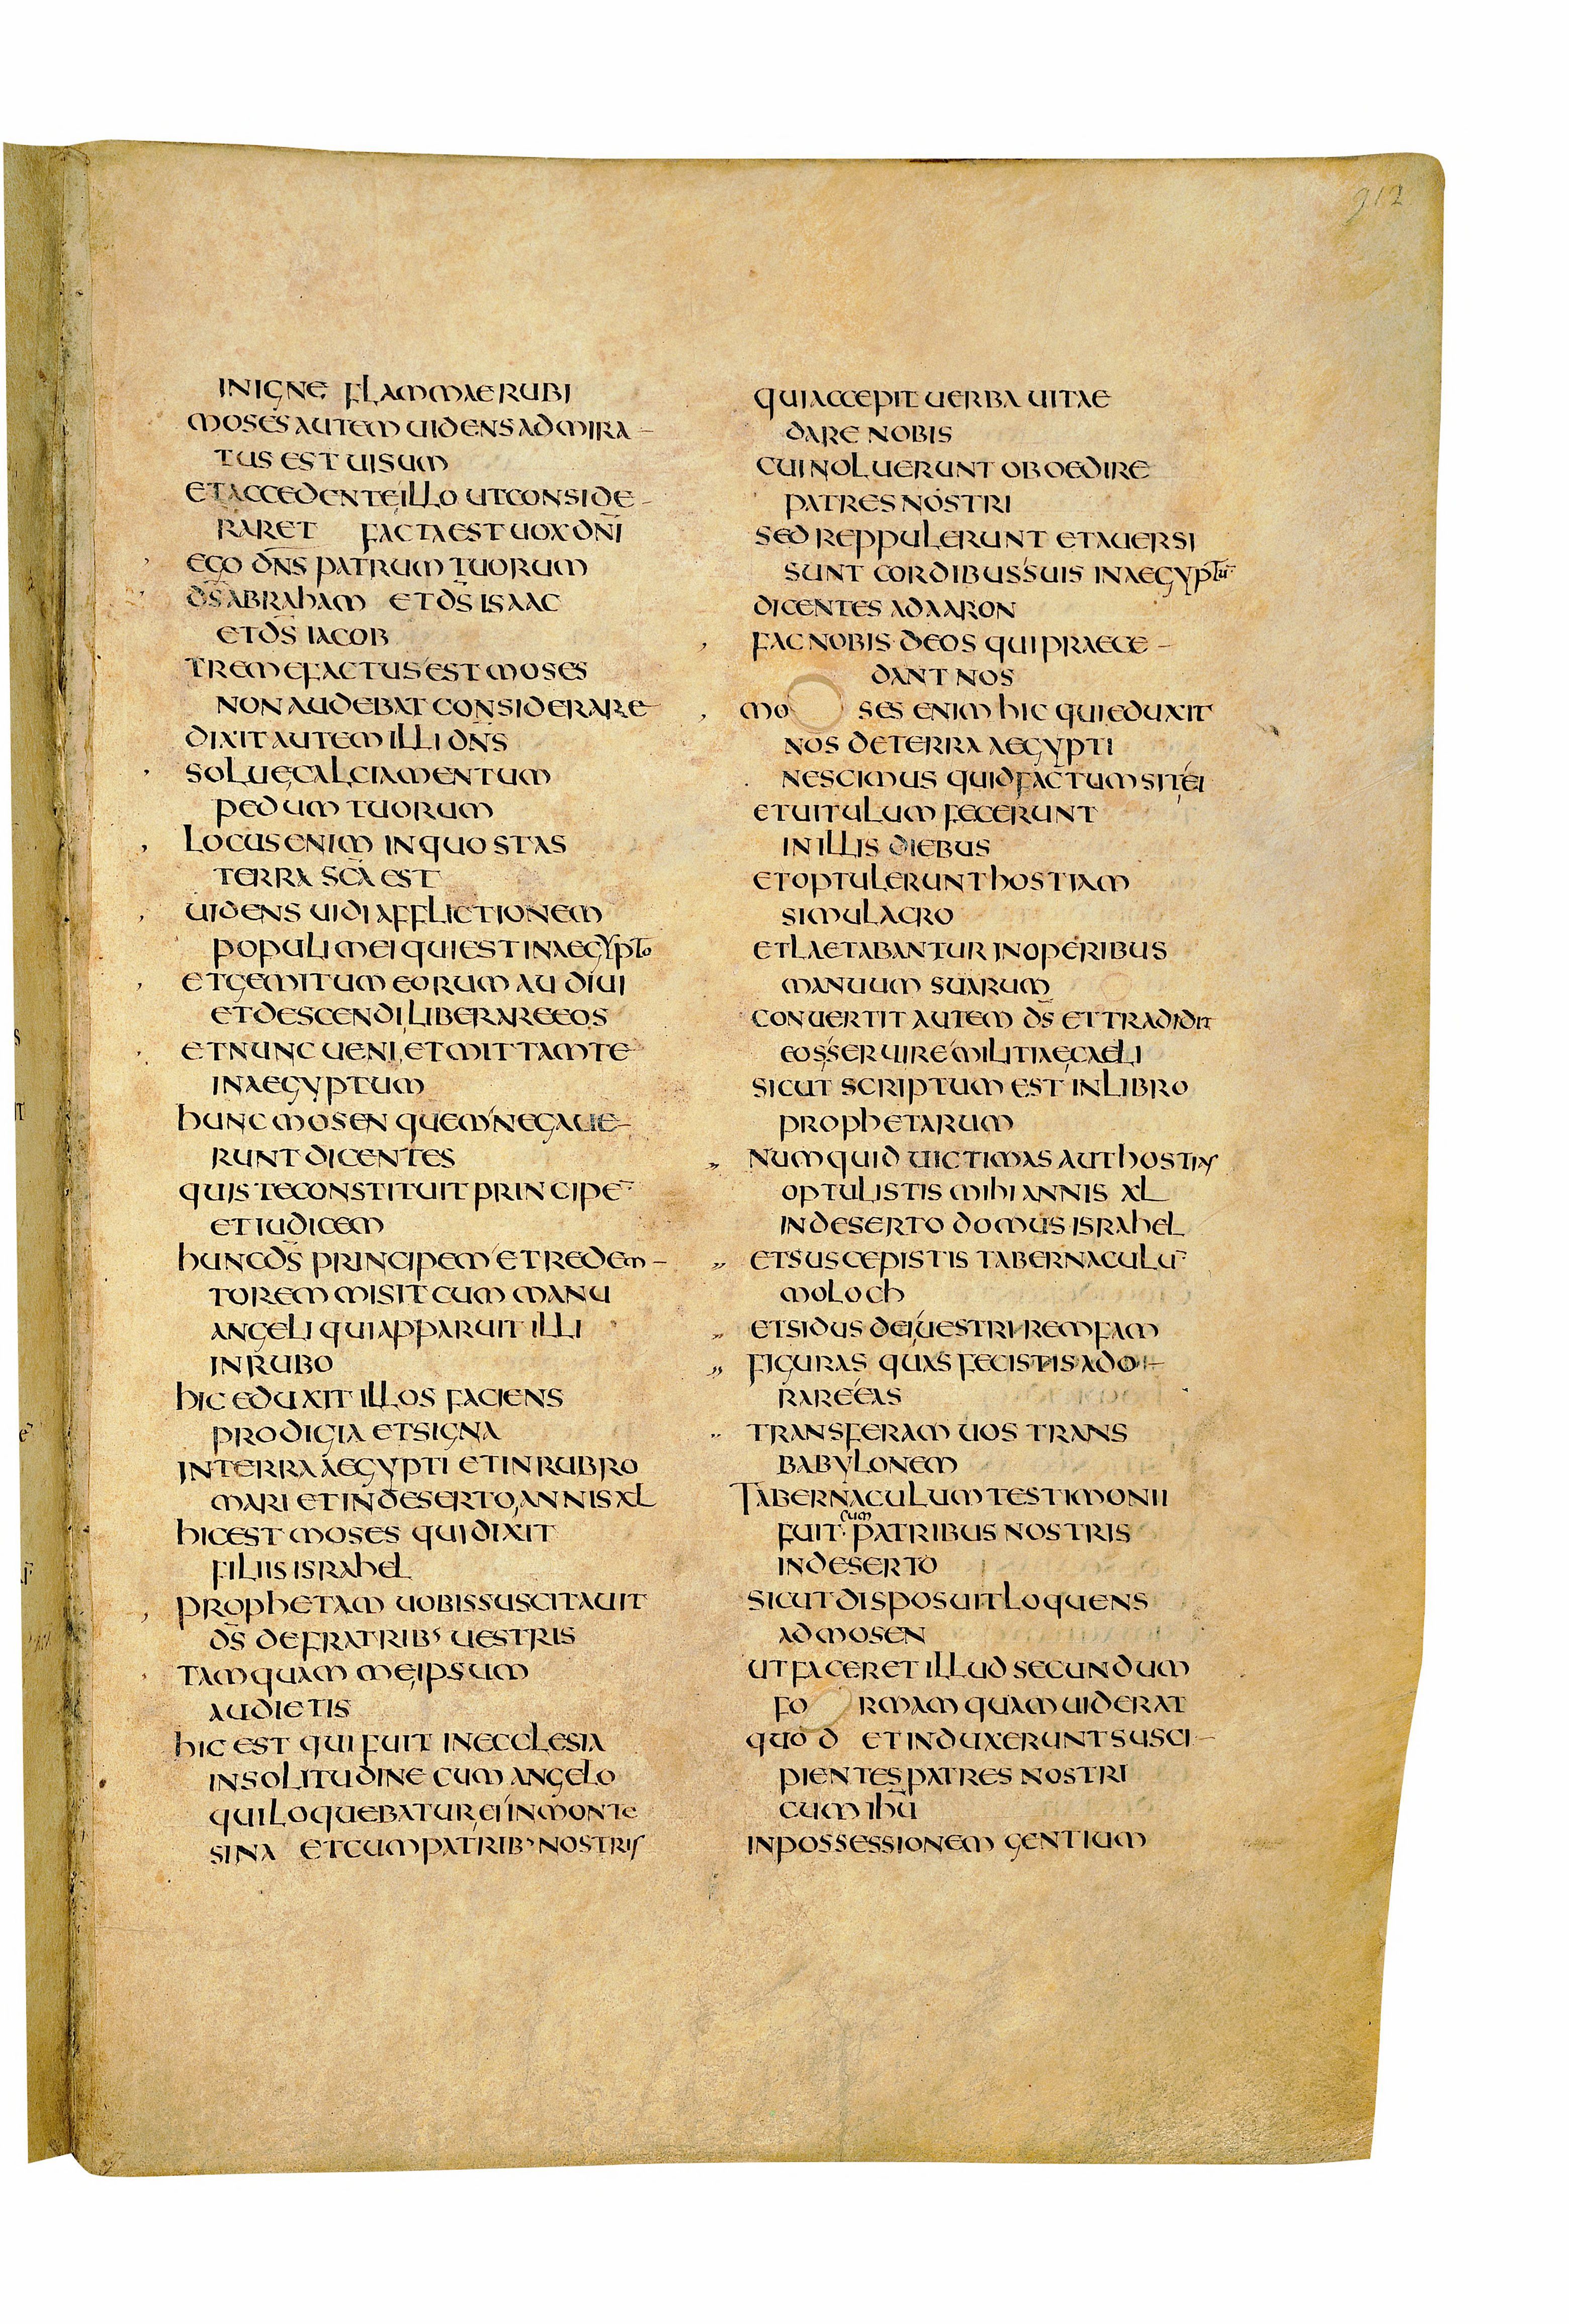 912
IN IGNE FLAMMAE RUBI
MOSES AUTEM UIDENS ADMIRA-
TUS EST UISUM
ET ACCEDENTE ILLO UT CONSIDE-
RARET FACTA EST UOX DN̄I
EGO DN̄S PATRUM TUORUM
DS̄ ABRAHAM ET DS̄ ISAAC
ET DS̄ IACOB
TREMEFACTUS EST MOSES
NON AUDEBAT CONSIDERARE
DIXIT AUTEM ILLI DN̄S
SOLUE CALCIAMENTUM
PEDUM TUORUM
LOCUS ENIM IN QUO STAS
TERRA SC̄A EST
UIDENS UIDI AFFLICTIONEM
POPULI MEI QUI EST IN AEGYPTO
ET GEMITUM EORUM AUDIUI
ET DESCENDI LIBERARE EOS
ET NUNC UENI ET MITTAM TE
IN AEGYPTUM
HUNC MOSEN QUEM NEGAUE-
RUNT DICENTES
QUIS TE CONSTITUIT PRINCIPE¯
ET IUDICEM
HUNC DS̄ PRINCIPEM ET REDEM-
TOREM MISIT CUM MANU
ANGELI QUI APPARUIT ILLI
IN RUBO
HIC EDUXIT ILLOS FACIENS
PRODIGIA ET SIGNA
IN TERRA AEGYPTI ET IN RUBRO
MARI ET IN DESERTO ANNIS XL
HIC EST MOSES QUI DIXIT
FILIIS ISRAHEL
PROPHETAM UOBIS SUSCITAUIT
DS̄ DE FRATRIB' UESTRIS
TAMQUAM ME IPSUM
AUDIETIS
HIC EST QUI FUIT IN ECCLESIA
IN SOLITUDINE CUM ANGELO
QUI LOQUEBATUR EI IN MONTE
SINA ET CUM PATRIB' NOSTRIS
QUI ACCEPIT UERBA UITAE
DARE NOBIS
CUI NOLUERUNT OBOEDIRE
PATRES NOSTRI
SED REPPULERUNT ET AUERSI
SUNT CORDIBUS SUIS IN AEGYPTU¯
DICENTES AD AARON
FAC NOBIS DEOS QUI PRAECE-
DANT NOS
MOSES ENIM HIC QUI EDUXIT
NOS DE TERRA AEGYPTI
NESCIMUS QUID FACTUM SIT EI
ET UITULUM FECERUNT
IN ILLIS DIEBUS
ET OPTULERUNT HOSTIAM
SIMULACRO
ET LAETABANTUR IN OPERIBUS
MANUUM SUARUM
CONUERTIT AUTEM DS̄ ET TRADIDIT
EOS SERUIRE MILITIAE CAELI
SICUT SCRIPTUM EST IN LIBRO
PROPHETARUM
NUMQUID UICTIMAS AUT HOSTIAS
OPTULISTIS MIHI ANNIS XL
IN DESERTO DOMUS ISRAHEL
ET SUSCEPISTIS TABERNACULU¯
MOLOCH
ET SIDUS DEI UESTRI REMFAM
FIGURAS QUAS FECISTIS ADO-
RARE EAS
TRANSFERAM UOS TRANS
BABYLONEM
TABERNACULUM TESTIMONII
FUIT cum PATRIBUS NOSTRIS
IN DESERTO
SICUT DISPOSUIT LOQUENS
AD MOSEN
UT FACERET ILLUD SECUNDUM
FORMAM QUAM UIDERAT
QUOD ET INDUXERUNT SUSCI-
PIENTES PATRES NOSTRI
CUM IHŪ
IN POSSESSIONEM GENTIUM